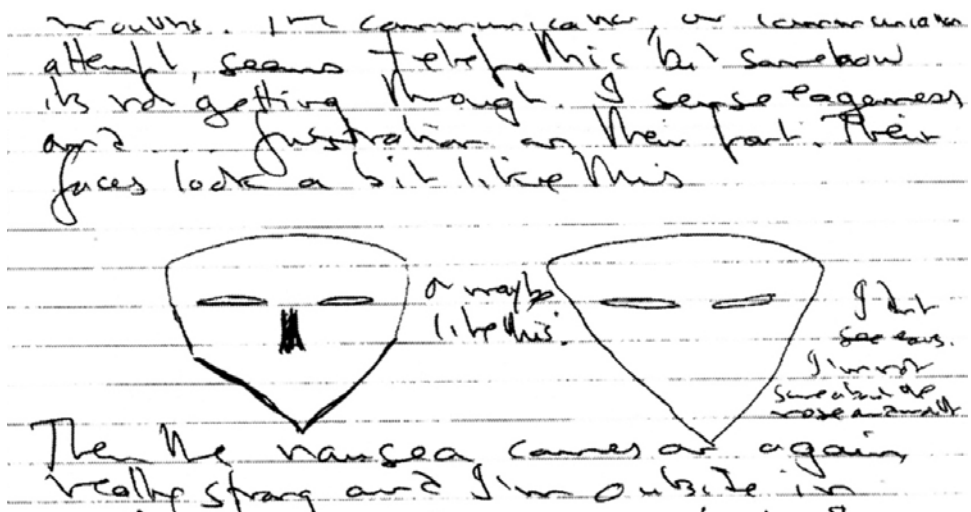 mouths. The communication, or communication
attempt, seems telepathic but somehow
its not getting through. I sense eagerness
and ... frustration on their part. Their
faces look a bit like this
or maybe
like this.
I dont
see ears.
I'm not
sure about the
nose and mouth
Then the nausea comes on again,
really strong and I'm outside in